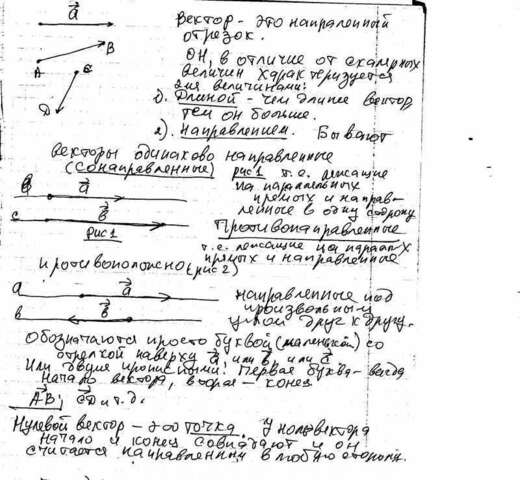 a⃗
Вектор - это направленный
отрезок.
A B
C
D
Он, в отличие от скалярных
величин характеризуется
величинами:
1). Длиной - чем длиннее вектор,
тем он больше.
2). Направлением. Бывают
векторы одинаково направленные
(Сонаправленные) рис1 т.е. лежащие
на параллельных
прямых и направ-
ленные в одну сторону
a⃗
c b⃗
рис1
Противонаправленные
т.е. лежащие на
прямых и направленные
противоположно (рис2)
a a⃗
b b⃗
направленные под
произвольным
углом друг к другу.
Обозначаются просто буквой (маленькой) со
стрелкой наверху a⃗ или b⃗, или
Или двумя прописными. Первая буква - всегда
начало вектора, вторая - конец
AB; CD и т.д.
Нулевой вектор - это точка. У
Начало и конец совпадают и он
считается направленным в любую сторону.